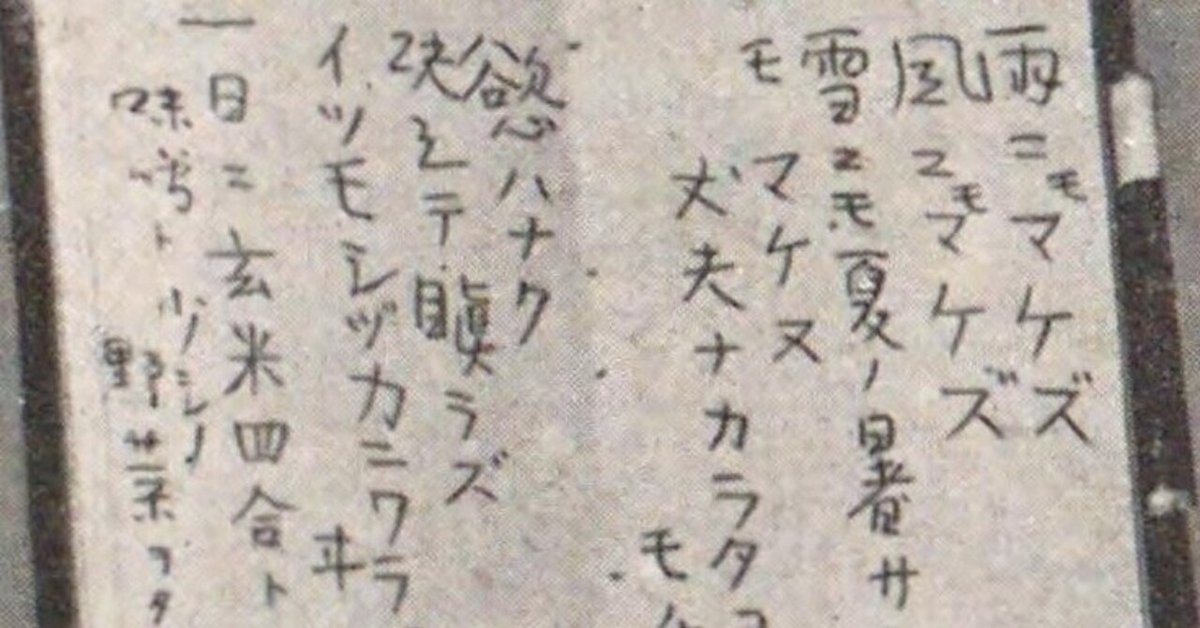 雨ニモマケズ
風ニモマケズ
雪ニモ夏ノ暑サ
モ マケヌ
丈夫ナカラダヲ
モ
慾ハナク
決シテ瞋ラズ
イツモシヅカニワラ
ヰ
一日ニ玄米四合ト
味噌ト少シノ
野菜ヲタ